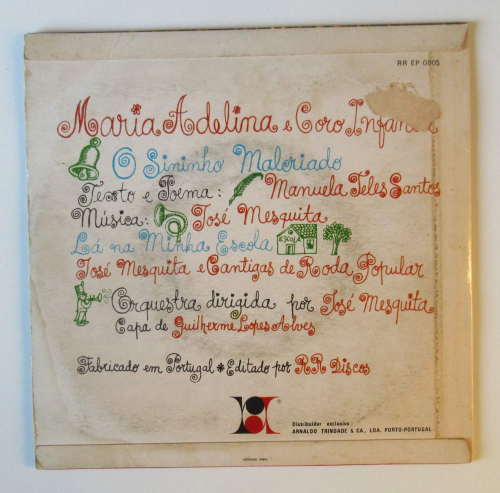 RR EP 0005
Maria Adelina e Coro Infantil
O Sininho Malcriado
Texto e Poema: Manuela Teles Santos
Música: José Mesquita
Lá na Minha Escola
ESCOLA
José Mesquita e Cantigas de Roda Popular
Orquestra dirigida por José Mesquita
Capa de Guilherme Lopes Alves
Fabricado em Portugal * Editado por RR Discos
Distribuidor exclusivo:
ARNALDO TRINDADE & CA., LDA. PORTO-PORTUGAL